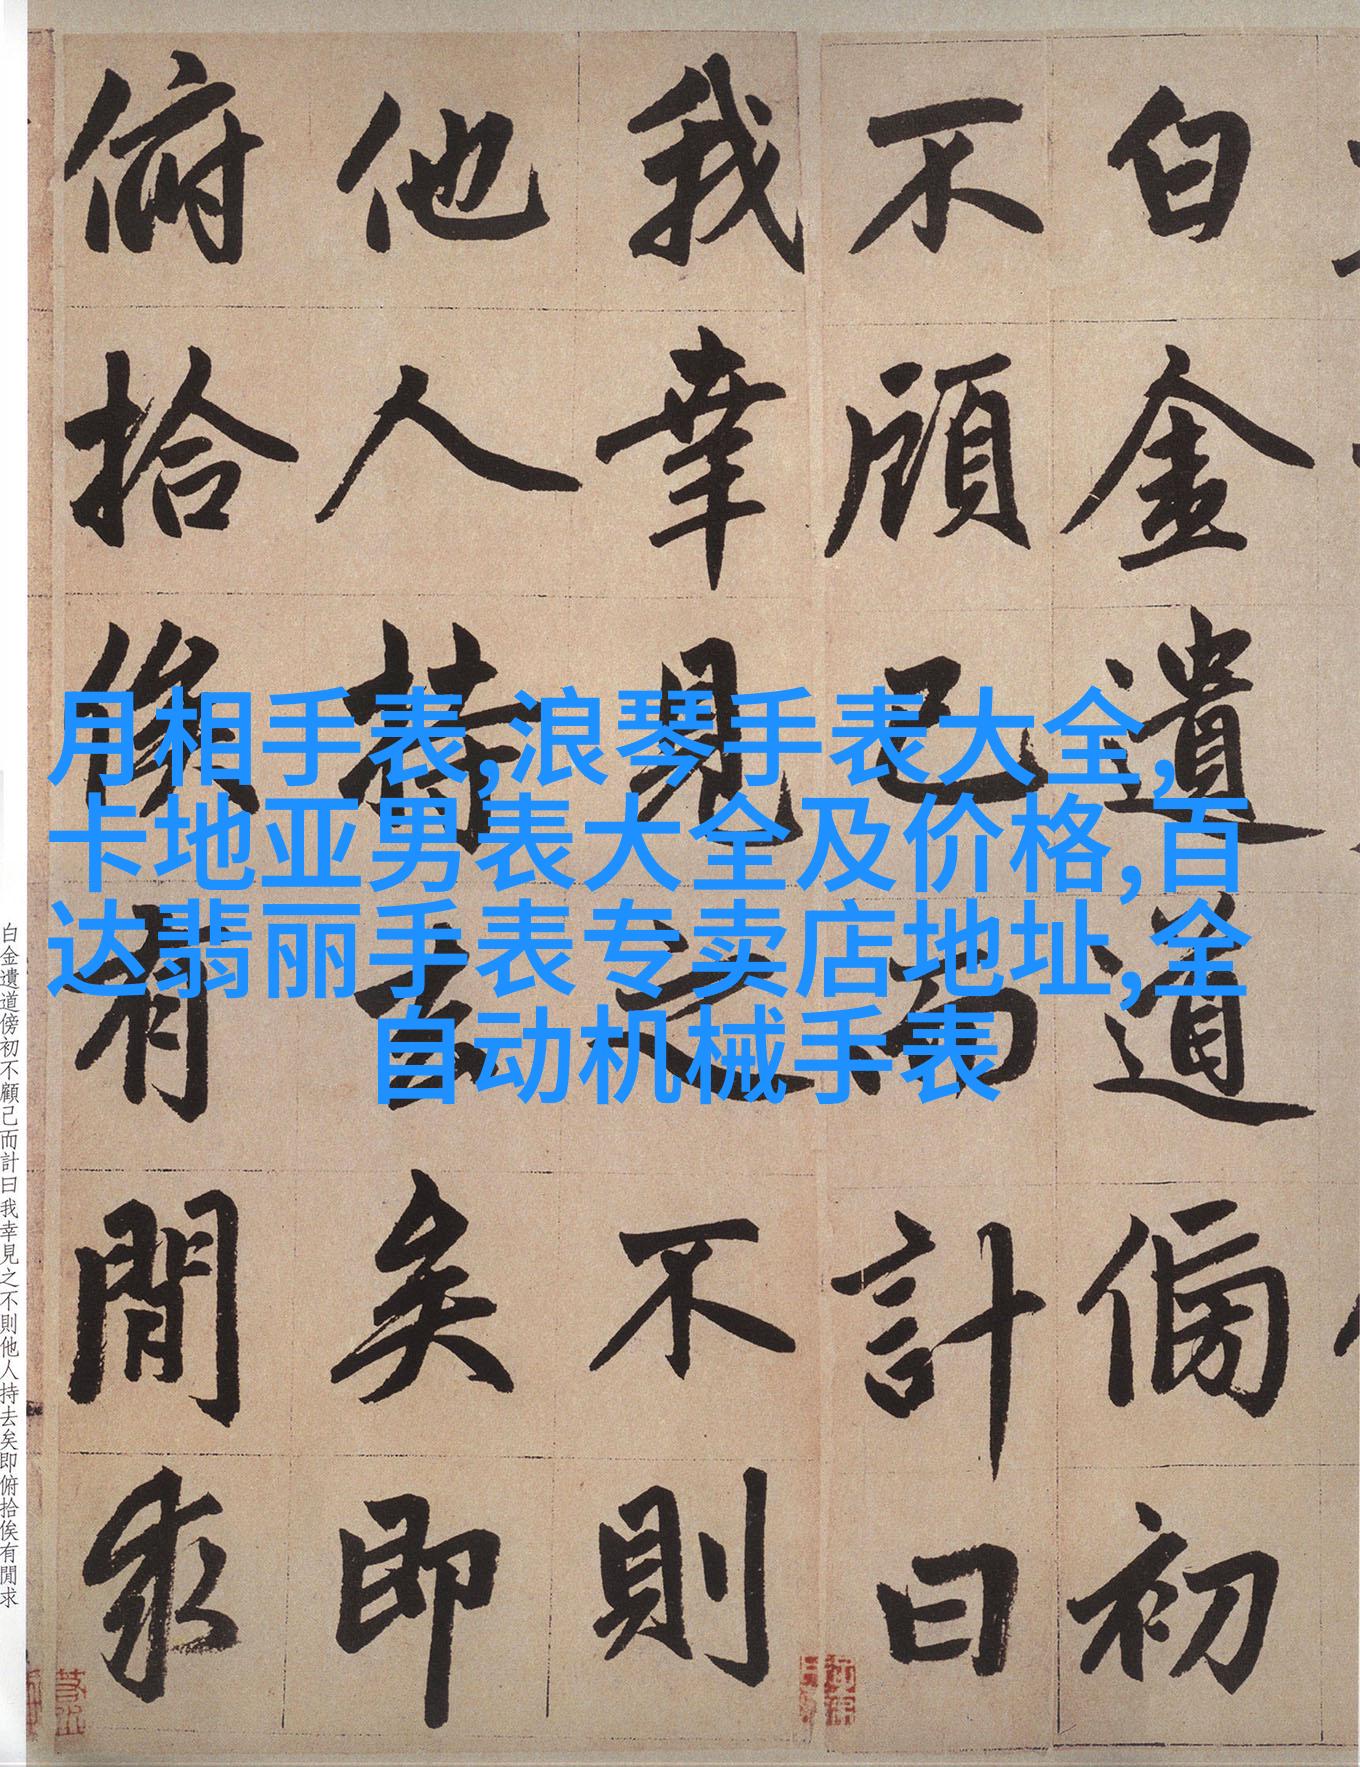 白金遺道傍初
不顧己而計曰
我幸見之不則
他人持去矣即
俯拾俟有閒求
月相手表,浪琴手表大全,
卡地亚男表大全及价格,百
达翡丽手表专卖店地址,全
自动机械手表
白金遺道傍初不顧己而計曰我幸見之不則他人持去矣即俯拾俟有閒求